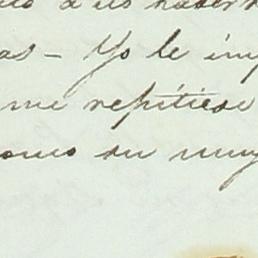 as - Yo le im
me repitiese
como su muy